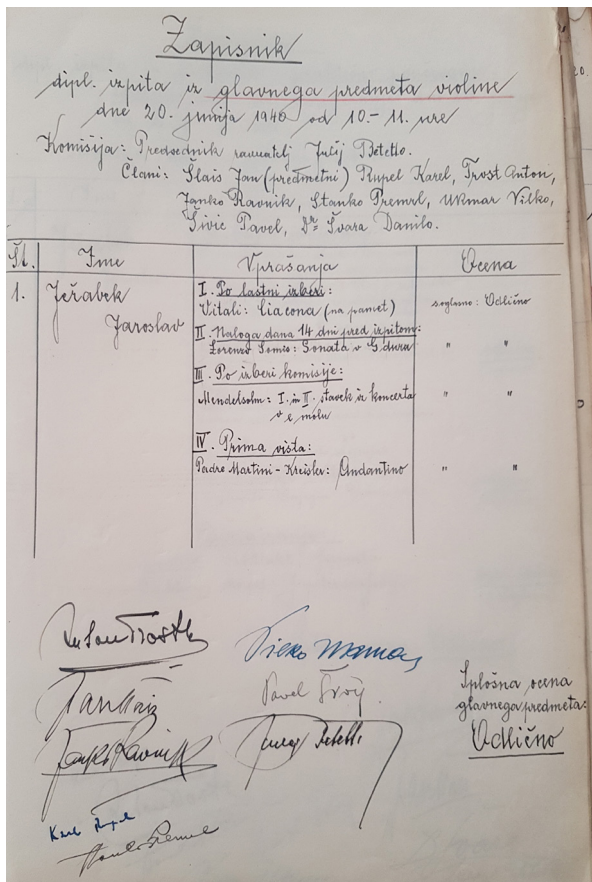 Zapisnik
dipl. izpita iz glavnega predmeta violine
dne 20. junija 1940 od 10.- 11. ure
Komisija: Predsednik ravnatelj Julij Betetto.
Člani: Šlais Jan (predmetni) Rupel Karel, Trost Anton,
Janko Ravnik, Stanko Premrl, Ukmar Vilko,
Šivic Pavel, Dr Švara Danilo.
Št. Ime Vprašanja Ocena
1. Jeřabek
Jaroslav
I. Po lastni izberi:
Vitali: Ciacona (na pamet) soglasno: Odlično
II. Naloga dana 14 dni pred izpitom:
Lorenzo Somis: Sonata v G duru " "
III. Po izberi komisije:
Mendelsohn: I. in II. stavek iz koncerta " "
v e molu
IV. Prima vista:
Padre Martini - Kreisler: Andantino " "
Anton Trost
Vilko Ukmar
Jan Šlais
Pavel Šivic
Janko Ravnik
Julij Betetto
Karlo Rupel
Stanko Premrl
Splošna ocena
glavnega predmeta:
Odlično